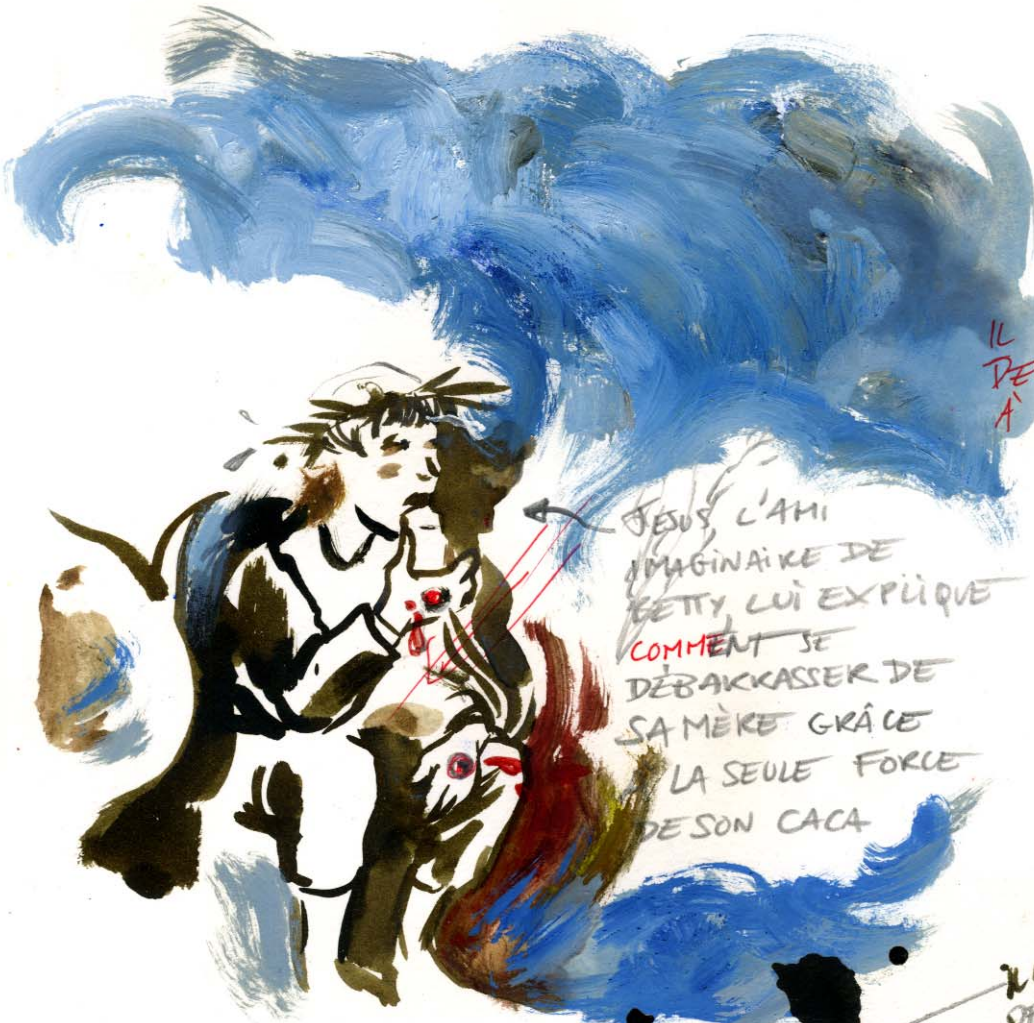 JESUS, L'AMI
IMAGINAIRE DE
BETTY, LUI EXPLIQUE
COMMENT SE
DÉBARRASSER DE
SA MÈRE GRÂCE
LA SEULE FORCE
DE SON CACA
IL
DE
À